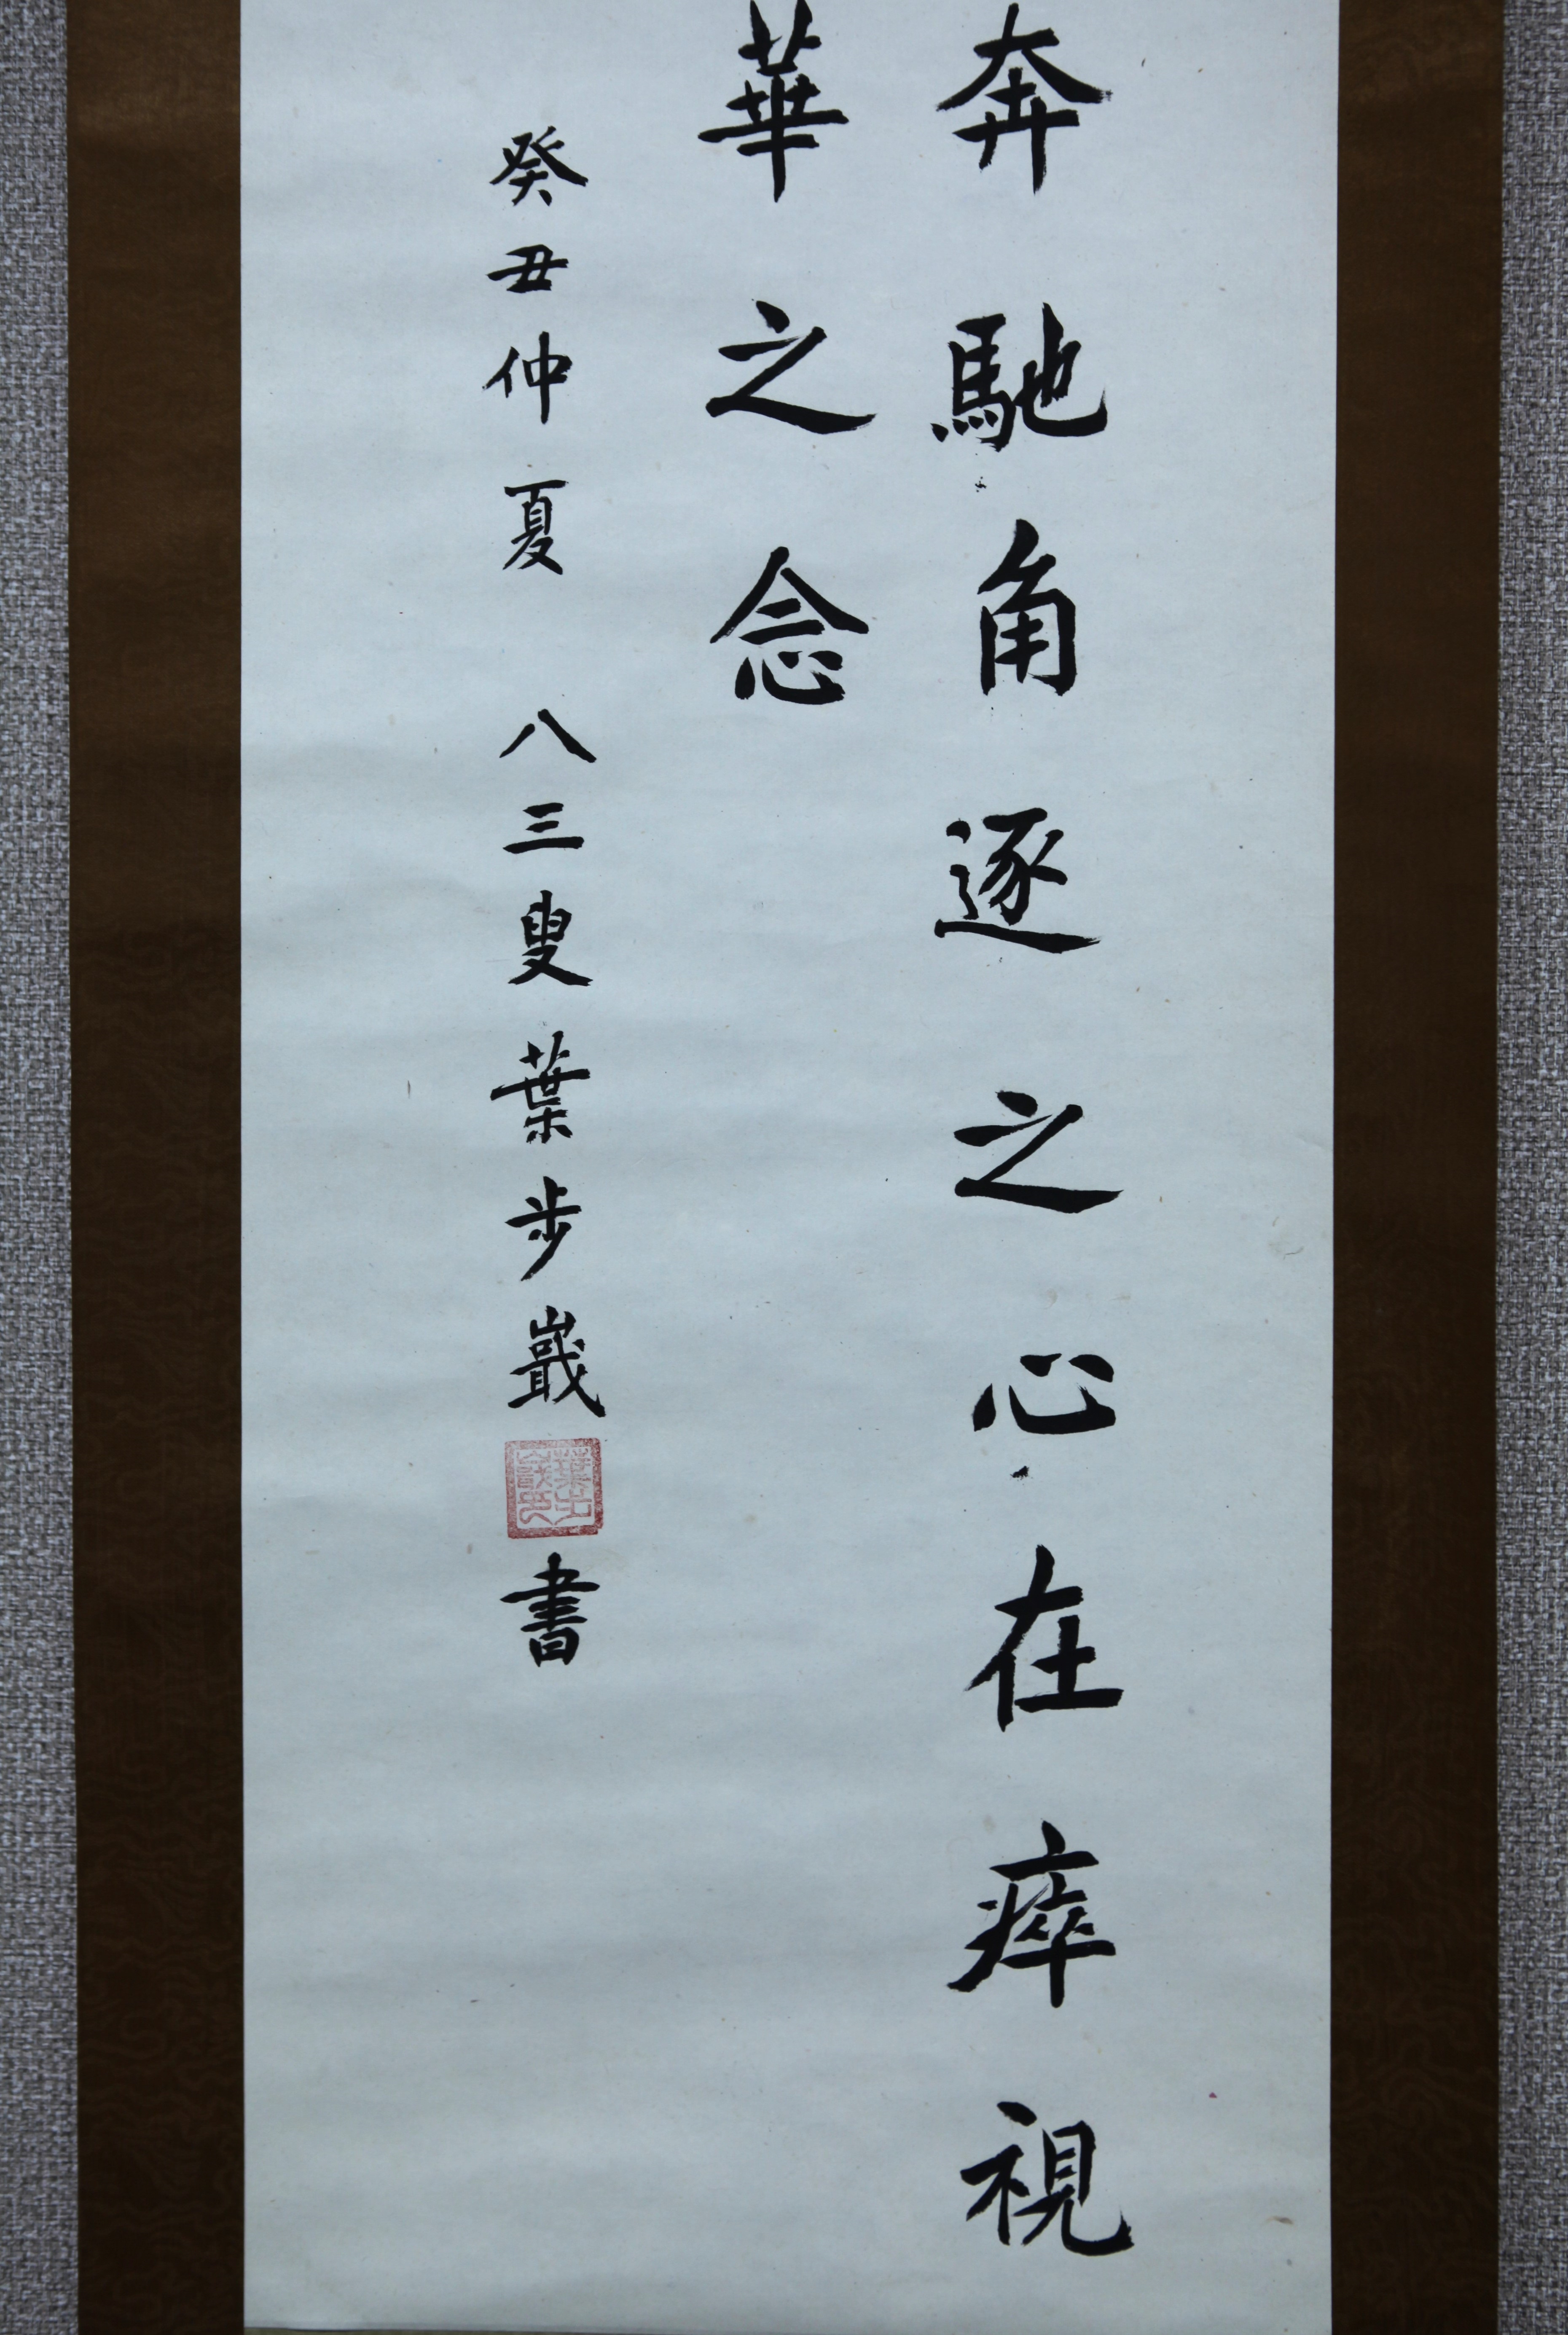 奔馳角逐之心在瘁視
華之念
癸丑仲夏 八三叟葉步嶯書
葉步嶯印